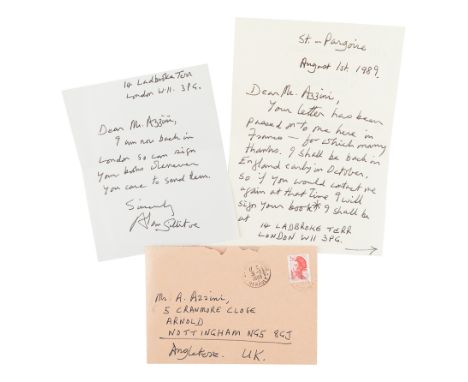 14 Ladbroke Terr
London W11. 3PG.
Dear Mr. Azzini,
I am now back in
London so can sign
your books whenever
you care to send them.
Sincerely
Alan Sillitoe
St. – Pargoire
August 1st. 1989.
Dear Mr. Azzini,
Your letter have been
passed on to me here in
France – for which many
thanks. I shall be back in
England early in October,
so if you would contact me
again at that time I will
sign your books. I shall be
at 14 LADBROKE TERR
LONDON W11 3PG.
Mr. A. Azzini,
5 CRANMORE CLOSE
ARNOLD
NOTTINGHAM NG5 8GJ
Angleterre. U.K.